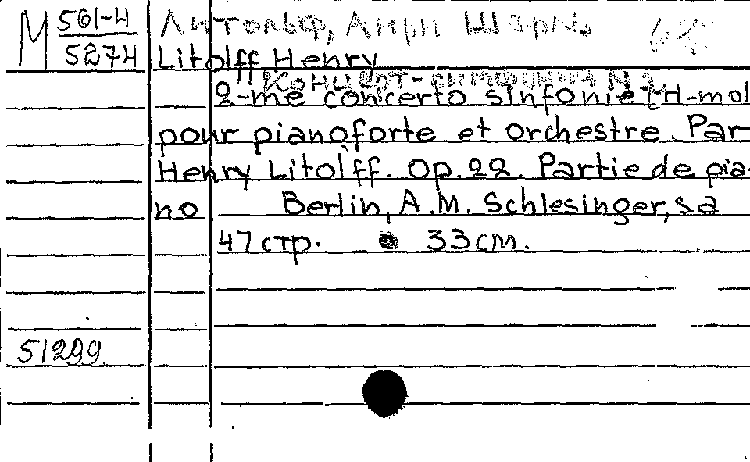 M 561-Н
5274
Литольф, Анри Шарль
Litolff Henry
Концерт-симфония N 2
2-me concerto sinfonie [H-mol
pour pianoforte et orchestre. Par
Henry Litolff. Op. 22. Partie de pia-
no Berlin, A.M. Schlesinger, s a
47 стр. 33 cm.
51299